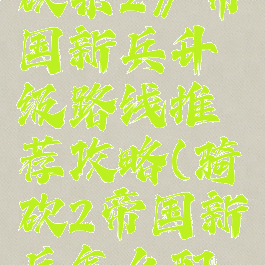 砍杀2》帝
国新兵升
级路线推
荐攻略(骑
砍2帝国新
兵怎么配